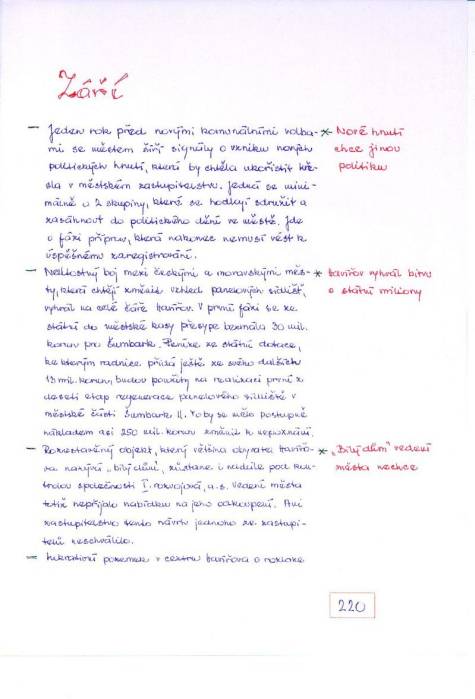 Září
— Jeden rok před novými komunálními volba-
mi se městem šíří signály o vzniku nových
politických hnutí, která by chtěla ukořistit kře-
sla v městském zastupitelstvu. Jedná se mini-
málně o 2 skupiny, které se hodlají sdružit a
zasáhnout do politického dění ve městě. Jde
o fázi příprav, která nakonec nemusí vést k
úspěšnému zaregistrování.
* Nové hnutí
chce jinou
politiku
— Nelítostný boj mezi českými a moravskými měs-
ty, která chtějí změnit vzhled panelových sídlišť,
vyhrál na celé čáře Havířov. V první fázi se ze
státní do městské kasy přesype bezmála 30 mil.
korun pro Šumbark. Peníze ze státní dotace,
ke kterým radnice přidá ještě ze svého dalších
13 mil. korun, budou použity na realizaci první z
deseti etap regenerace panelového sídliště v
městské části Šumbark II. To by se mělo postupně
nákladem asi 250 mil. korun změnit k nepoznání.
* Havířov vyhrál bitvu
o státní miliony
— Rozestavěný objekt, který většina obyvatel Havířo-
va nazývá „bílý dům", zůstane i nadále pod kon-
trolou společnosti I. rozvojová, a.s. Vedení města
totiž nepřijalo nabídku na jeho odkoupení. Ani
zastupitelstvo tento návrh jednoho ze zastupi-
telů neschválilo.
* „Bílý dům" vedení
města nechce
— Lukrativní pozemek v centru Havířova o rozloze
220